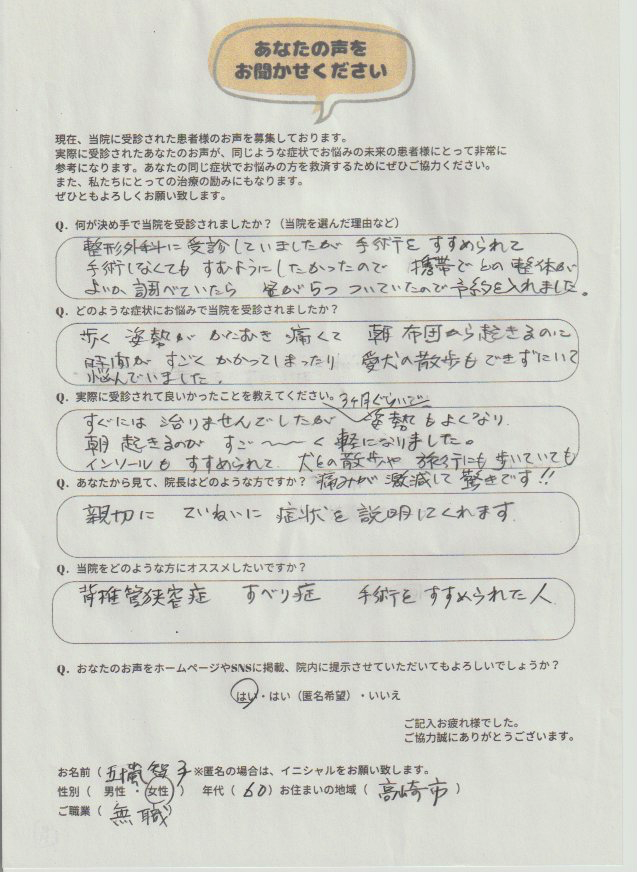 あなたの声を
お聞かせください
現在、当院に受診された患者様のお声を募集しております。
実際に受診されたあなたのお声が、同じような症状でお悩みの未来の患者様にとって非常に
参考になります。あなたの同じ症状でお悩みの方を救済するためにぜひご協力ください。
また、私たちにとっての治療の励みにもなります。
ぜひともよろしくお願い致します。
Q. 何が決め手で当院を受診されましたか？（当院を選んだ理由など）
整形外科に受診していましたが 手術を すすめられて
手術しなくても すむようにしたかったので 携帯でどの整体が
よいか 調べていたら 星が5つ ついていたので予約を入れました。
Q. どのような症状にお悩みで当院を受診されましたか？
歩く 姿勢が かたむき 痛くて 朝 布団から起きるのに
時間が すごく かかってしまったり 愛犬の散歩も できずにいて
悩んでいました。
Q. 実際に受診されて良いかったことを教えてください。
3ヶ月ぐらいで
すぐには 治りませんでしたが 姿勢もよくなり
朝 起きるのが すご〜〜く 軽になりました。
インソールも すすめられて 犬との散歩や 旅行にも 歩いていても
痛みが 激減して 驚きです!!
Q. あなたから見て、院長はどのような方ですか？
親切に ていねいに 症状を 説明してくれます
Q. 当院をどのような方にオススメしたいですか？
脊椎管狭窄症 すべり症 手術を すすめられた人
Q. おなたのお声をホームページやSNSに掲載、院内に提示させていただいてもよろしいでしょうか？
はい・はい（匿名希望）・いいえ
ご記入お疲れ様でした。
ご協力誠にありがとうございます。
お名前（ 子 ※匿名の場合は、イニシャルをお願い致します。
性別（ 男性 ・ 女性 ） 年代（ 60 ）お住まいの地域（ 高崎市 ）
ご職業（ 無職 ）